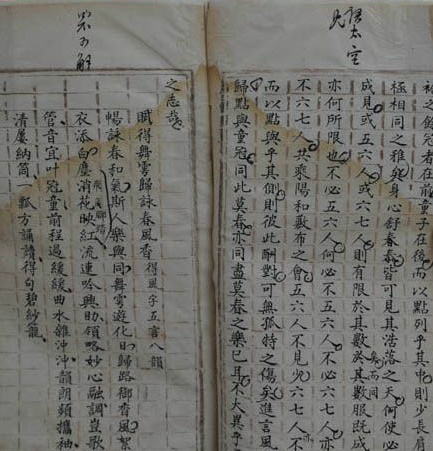 語太空
袖之餘冠者在前童子在後而以點列乎其中則少長肩
極相同之雅與身心舒春春皆可見其活落之天何使必
成見或五六人或六七人則有限於其數於其數服既成
亦何所限也不必五六人何必不五六人不必六七人亦
不六七人共乘陽和敷布之會五六人不見少六七人不
而以點與乎其側則彼此酬對可無孤特之傷矣進言風
歸點與童冠同此莫春亦同盡莫春之樂已耳不大異乎
之志哉
賦得舞雩歸詠春風香得風字五言八韻
暢詠春和氣斯人樂與同舞雩遊化日歸路御香風絮
衣添白塵消花映紅流連吟興助領略妙心融調豈歌
管音宜叶冠童前程過緩緩曲水雜沖沖韻朗頻攜袖
清屢納筒一瓢方誦讀得句碧紗籠